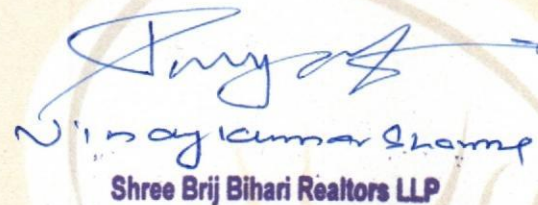 Vinay Kumar Sharma
Shree Brij Bihari Realtors LLP